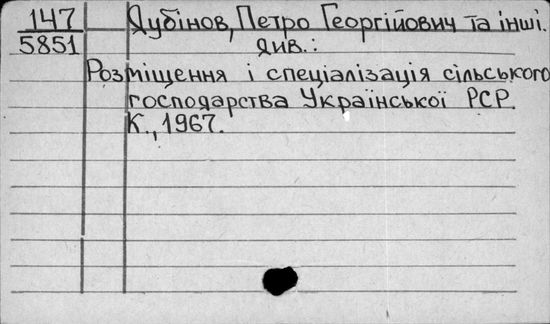 147
5851
Дубінов, Петро Георгійович та інші.
див.:
Розміщення і спеціалізація сільського
господарства Української РСР.
К., 1967.